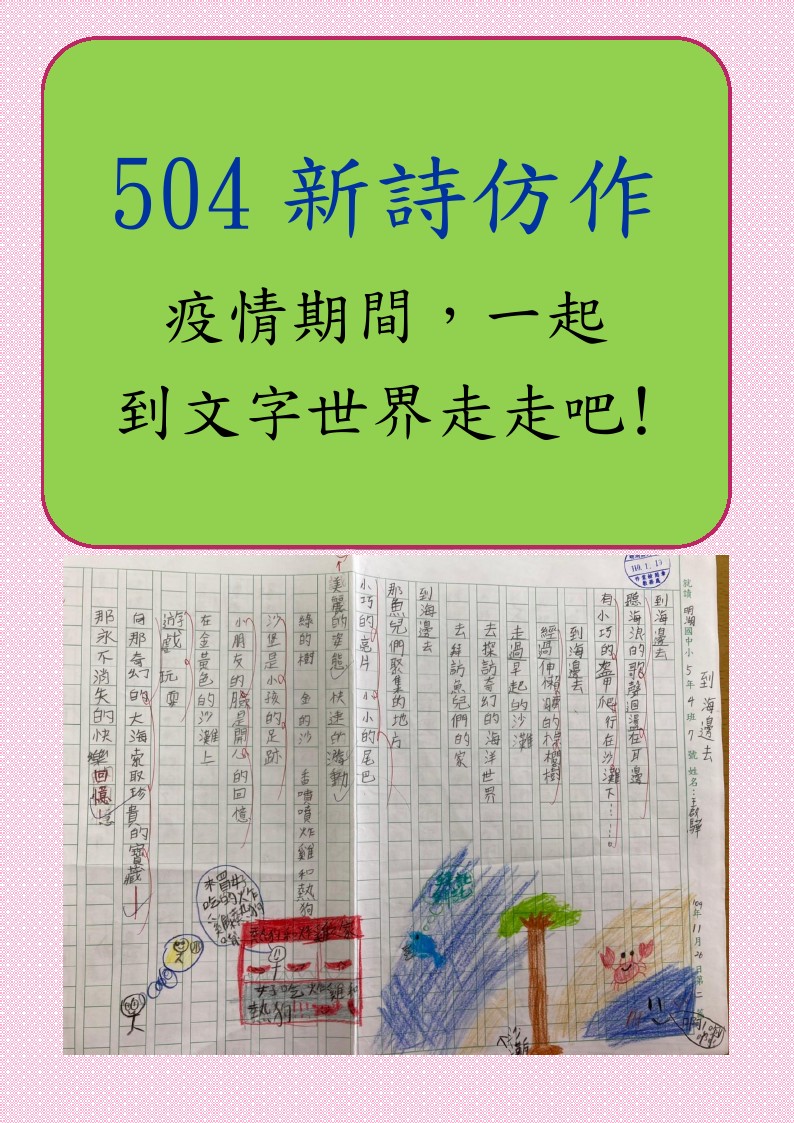 504 新詩仿作
疫情期間，一起
到文字世界走走吧!
110.1.13
就讀 明湖國中小 5 年 4 班 7 號 姓名：王
109年 11 月 26 日第二
到海邊去
到海邊去
聽海浪的歌聲迴盪在耳邊
有小巧的盔甲爬行在沙灘下……。
到海邊去
經過伸懶腰的棕櫚樹
走過早起的沙灘
去探訪奇幻的海洋世界
去拜訪魚兒們的家
到海邊去
那魚兒們聚集的地方
小巧的亮片 小小的尾巴
美麗的姿態 快速的游動
綠的樹 金的沙 香噴噴炸雞和熱狗
沙堡是小孩的足跡
小朋友的臉是開心的回憶
在金黃色的沙灘上
遊戲 玩耍
向那奇幻的大海索取珍貴的寶藏
那永不消失的快樂回憶
熱狗和炸雞
好吃炸雞和
熱狗